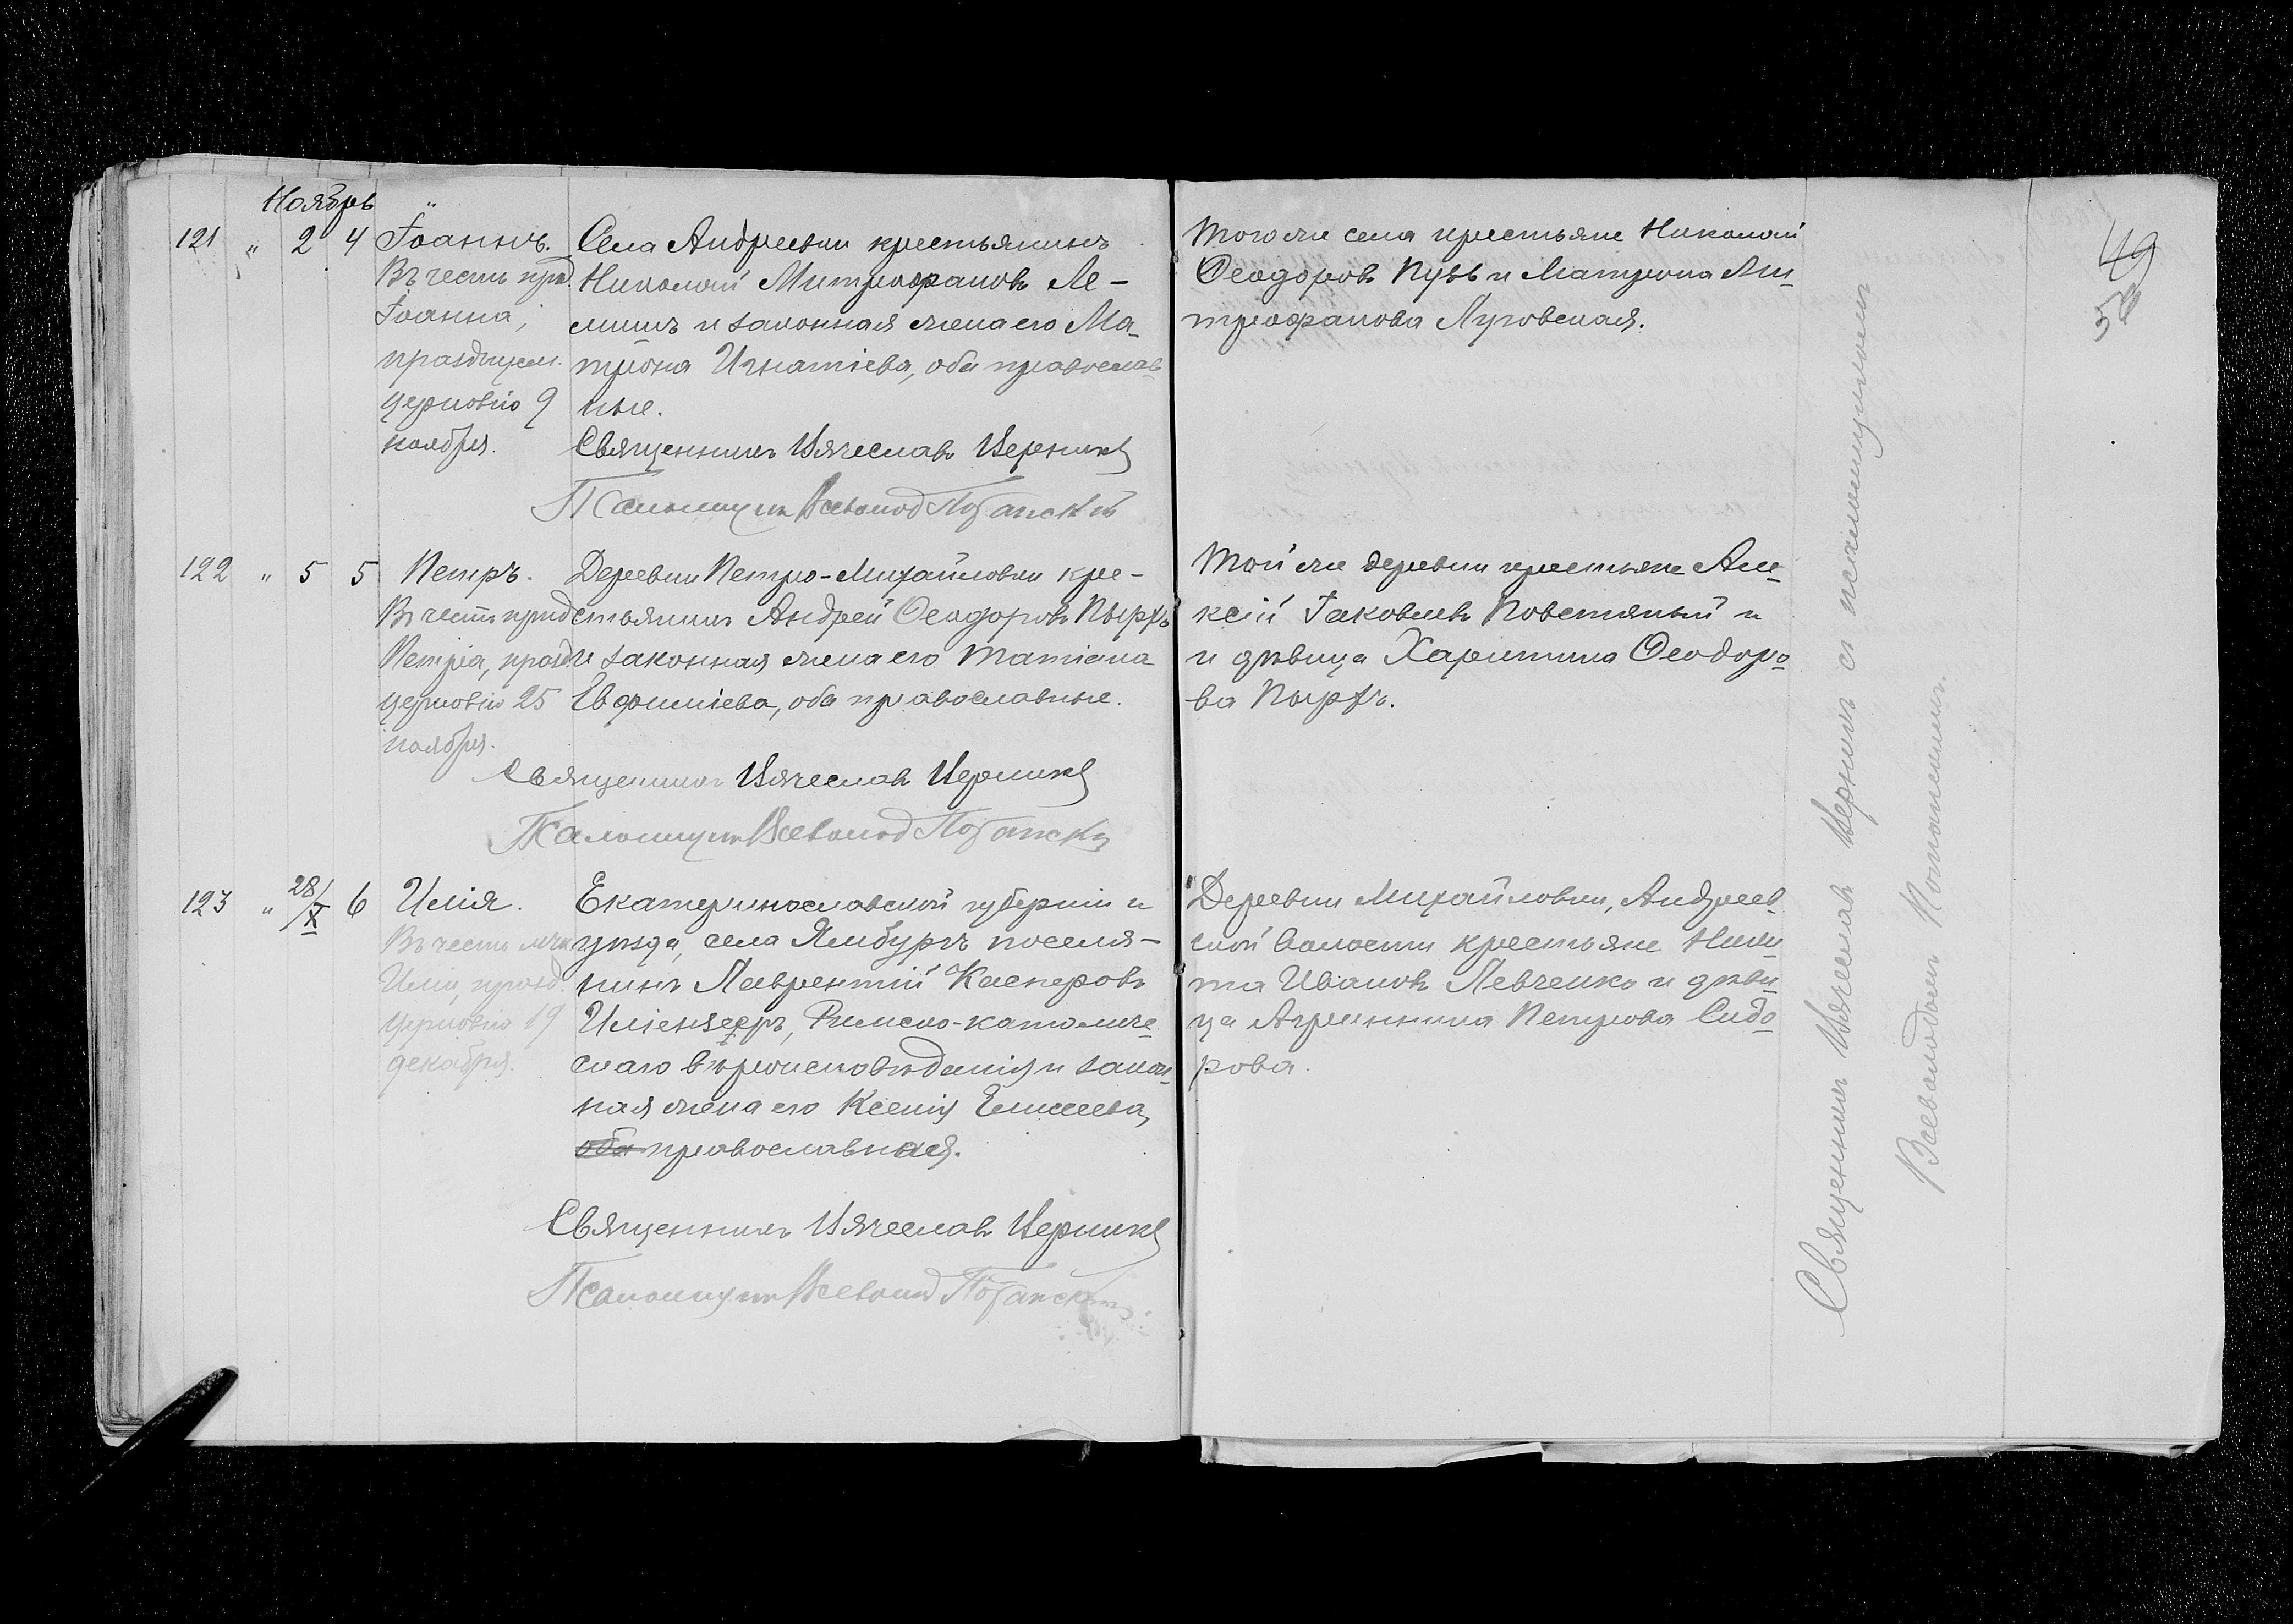 Ноябрь
121 " 2 4 Іоаннъ.
Въ честь прп.
Іоанна,
празднуем.
церковію 9
ноября.
Села Андреевки крестьянинъ
Николай Митрофановъ Ле-
и законная жена его Ма-
трона Игнатіева, оба православ-
ные.
Священникъ Вячеславъ Черникъ
Псаломщикъ Всеволод
Того же села крестьяне Николай
Ѳеодоровъ и Матрона Ми-
трофанова
49
122 " 5 5 Петръ.
Въ честь
Петра, празд.
церковію 25
ноября.
Деревни Петро-Михайловки кре-
стьянинъ Андрей Ѳеодоровъ Пырхъ
и законная жена его Татіана
Евфиміева, оба православные.
Священникъ Вячеславъ Черникъ
Псаломщикъ Всеволод
Той же деревни крестьяне Але-
ксій Іаковлевъ Повстяный и
и дѣвица Харитина Ѳеодоро-
ва Пырхъ.
123 " 28/X 6 Илія.
Въ честь муч.
Иліи, празд.
церковію 19
декабря.
Екатеринославской губерніи и
уѣзда, села Ямбургъ поселя-
нинъ Лаврентій Касперовъ
Римско-католиче-
скаго вѣроисповѣданія и закон-
ная жена его Ксенія Елисеева,
оба православная.
Священникъ Вячеславъ Черникъ
Псаломщикъ Всеволод
Деревни Михайловки, Андреев-
ской волости крестьяне Ники-
та Ивановъ Левченко и дѣви-
ца Агриппина Петрова Сидо-
рова.
Священникъ Вячеславъ Черникъ съ псаломщикомъ
Всеволодомъ